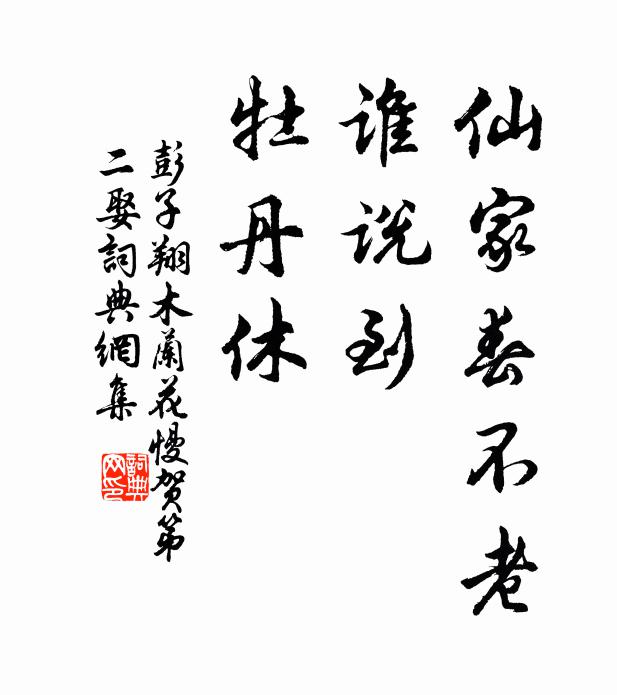 仙家春不老
谁说到
牡丹休
彭子翔木蘭花慢贺第
二娶詞典網集
詞典网印